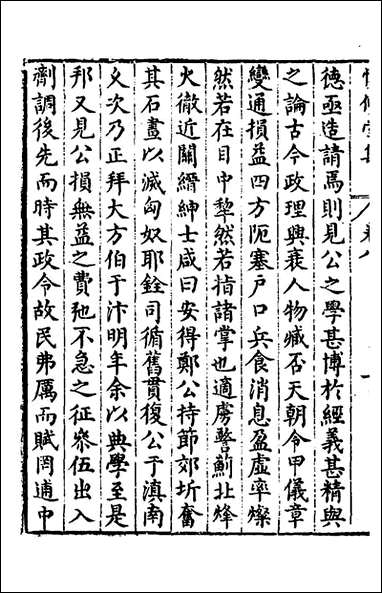 德亟造請焉則見公之學甚博於經義甚精與
之論古今政理興衰人物臧否天朝令甲儀章
變通損益四方阨塞戶口兵食消息盈虛率燦
然若在目中犂然若指諸掌也適虜警薊北烽
火徹近關縉紳士咸曰安得鄭公持節郊圻奮
其石畫以滅匈奴耶銓司循舊貫復公于滇南
攵次乃正拜大方伯于汴明年余以典學至是
邦又見公損無益之費弛不急之征叅伍出入
劑調後先而時其政令故民弗厲而賦罔逋中